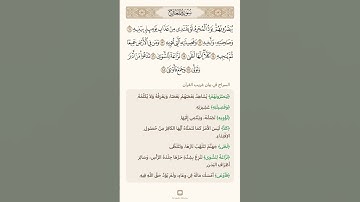 سُورَةُ المَعَارِجِ
يُبَصَّرُونَهُمْ يَوَدُّ الْمُجْرِمُ لَوْ يَفْتَدِى مِنْ عَذَابِ يَوْمِئِذٍ بِبَنِيهِ
وَصَاحِبَتِهِ وَأَخِيهِ وَفَصِيلَتِهِ الَّتِى تُـْٔوِيهِ وَمَن فِى الْأَرْضِ جَمِيعًا
ثُمَّ يُنجِيهِ كَلَّا إِنَّهَا لَظَى نَزَّاعَةً لِّلشَّوَى تَدْعُوا مَنْ أَدْبَرَ
وَتَوَلَّى وَجَمَعَ فَأَوْعَى
السراج في بيان غريب القرآن
﴿يُبَصَّرُونَهُمْ﴾ يُشَاهِدُ بَعْضُهُمْ بَعْضًا، وَيَعْرِفُهُ وَلَا يُكَلِّمُهُ.
﴿وَفَصِيلَتِهِ﴾ عَشِيرَتِهِ.
﴿تُؤْوِيهِ﴾ تَضُمُّهُ، وَيَنْتَمِي إِلَيْهَا.
﴿كَلَّا﴾ لَيْسَ الأَمْرُ كَمَا تَتَمَنَّاهُ أَيُّهَا الكَافِرُ مِنْ حُصُولِ
الاِفْتِدَاءِ.
﴿لَظَى﴾ جَهَنَّمُ تَتَلَهَّبُ نَارُهَا، وَتَتَلَظَّى.
﴿نَزَّاعَةً لِلشَّوَى﴾ تَنْزِعُ بِشِدَّةِ حَرِّهَا جِلْدَةَ الرَّأْسِ، وَسَائِرِ
أَطْرَافِ البَدَنِ.
﴿فَأَوْعَى﴾ أَمْسَكَ مَالَهُ فِي وِعَاءٍ، وَلَمْ يُؤَدِّ حَقَّ اللهِ فِيهِ.